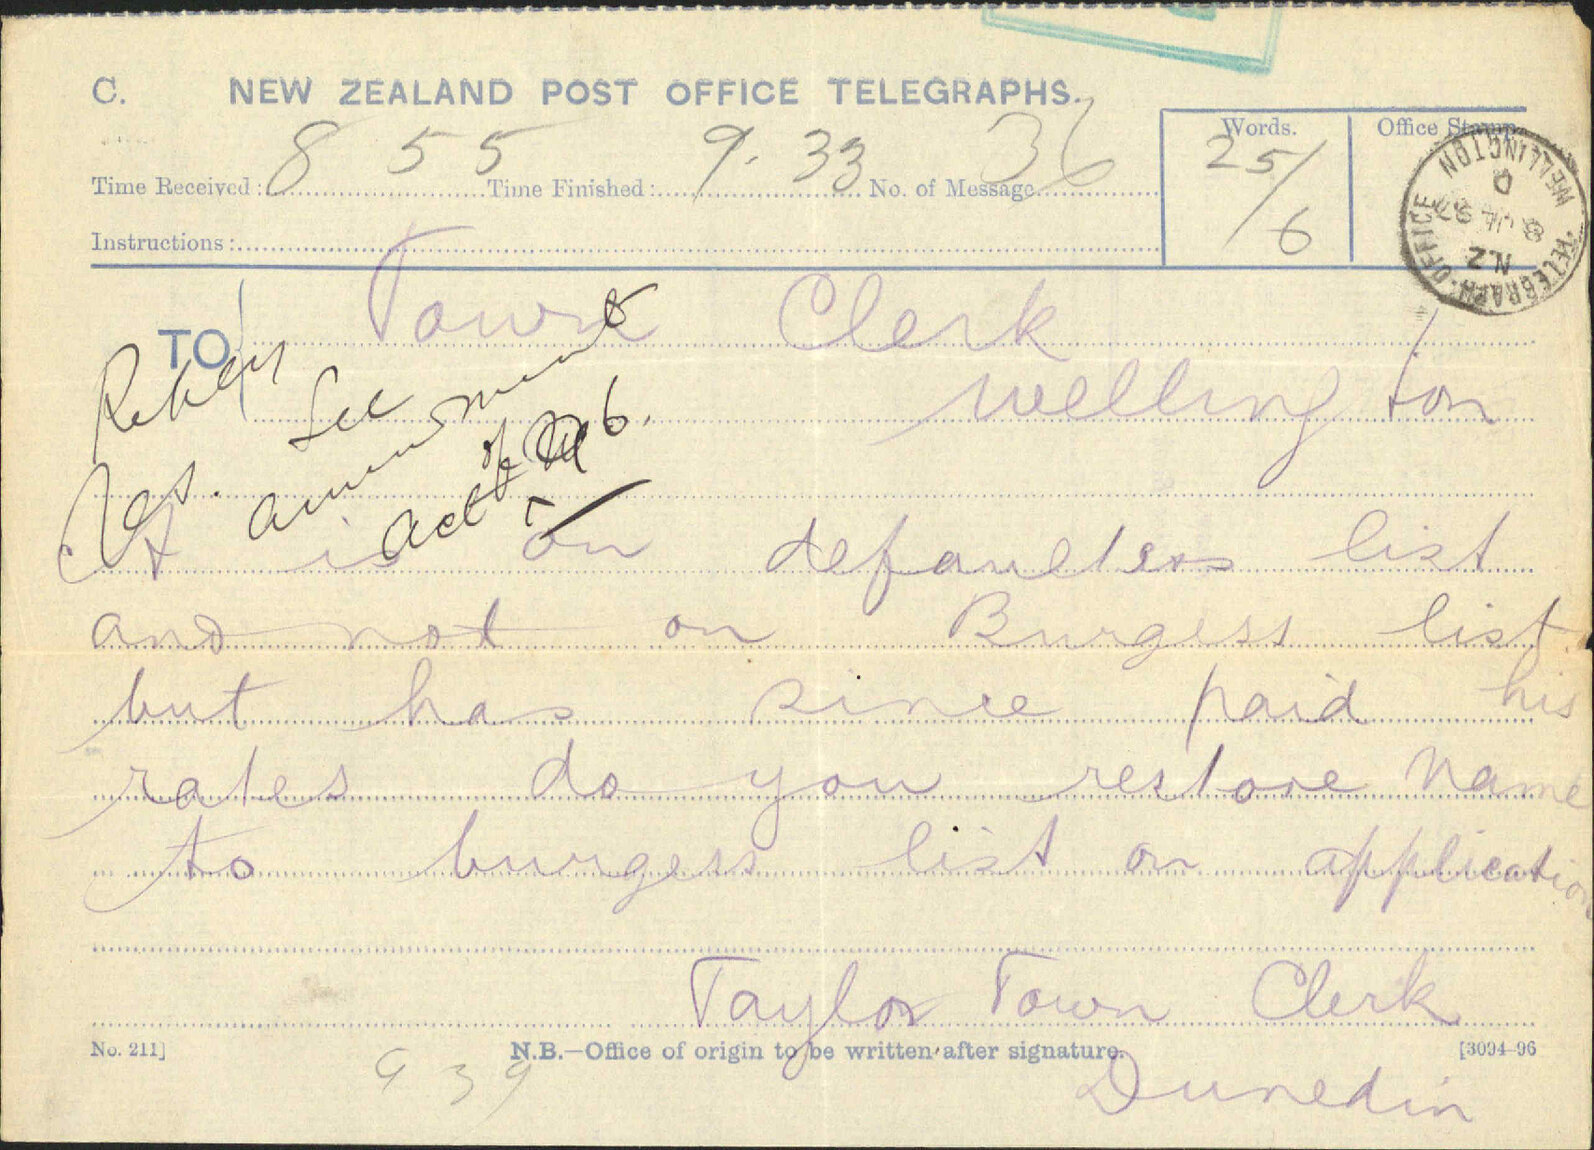 C. NEW ZEALAND POST OFFICE TELEGRAPHS.
Time Received: 8 55 Time Finished: 9.33 No. of Message 36
Words. 25/6
Office Stamp.
TELEGRAPH-OFFICE WELLINGTON N.Z
Instructions:
TO Town Clerk
Wellington
Yes. See
amendment
act of 96.
is on defaulters list
and not on Burgess list
but has since paid his
rates do you restore name
to burgess list on application
Taylor Town Clerk
No. 211] N.B.—Office of origin to be written after signature. [3094-96
Dunedin
9 39